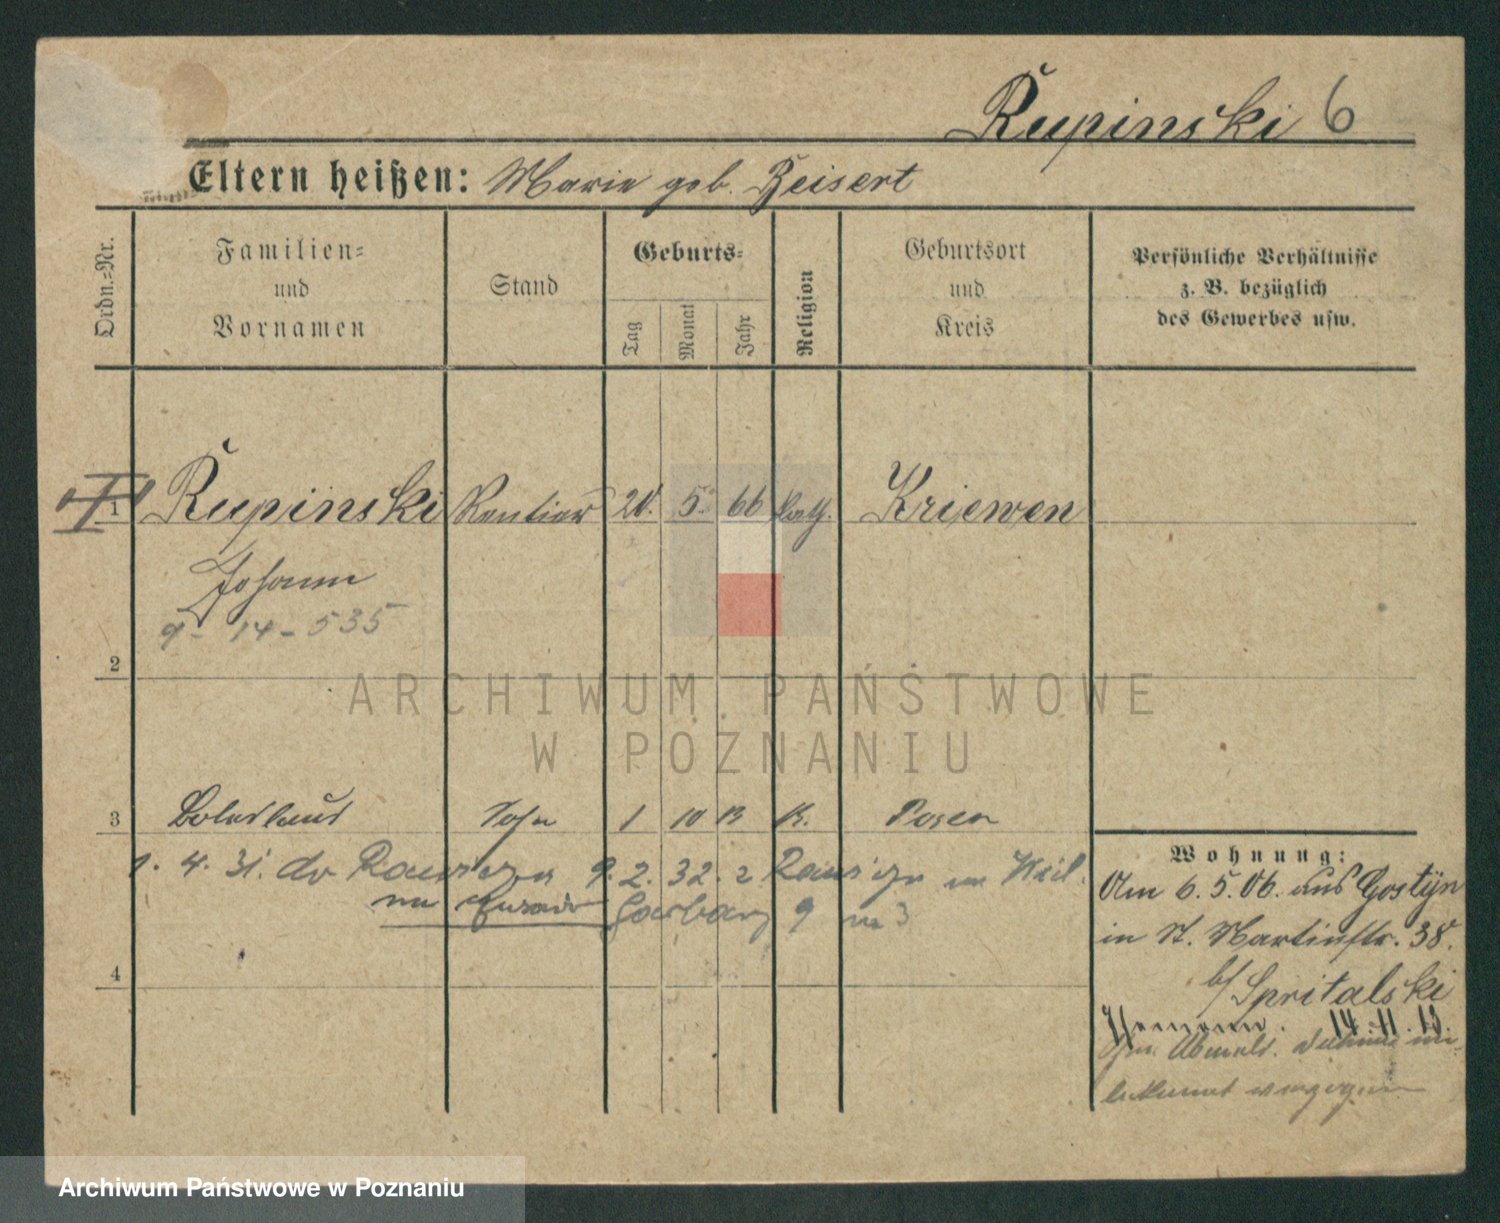 Rupinski 6
Eltern heißen: Marie geb. Zeisert
Ordn.-Nr.
Familien- und Vornamen
Stand
Geburts-
Tag
Monat
Jahr
Religion
Geburtsort und Kreis
Persönliche Verhältnisse z. B. bezüglich des Gewerbes usw.
1 Rupinski Rentier 20. 5. 66 kath. Kriewen
Johann
9-14-535
2
3 Boleslaus Sohn 1 10 13 K. Posen
1. 4. 31. do 9. 2. 32. z
Garbary 9 m 3
4
Wohnung:
Am 6.5.06. aus Gostyn
in St. Martinstr. 38.
b/ Spritalski
14.11.13.
ARCHIWUM PAŃSTWOWE
W POZNANIU
Archiwum Państwowe w Poznaniu